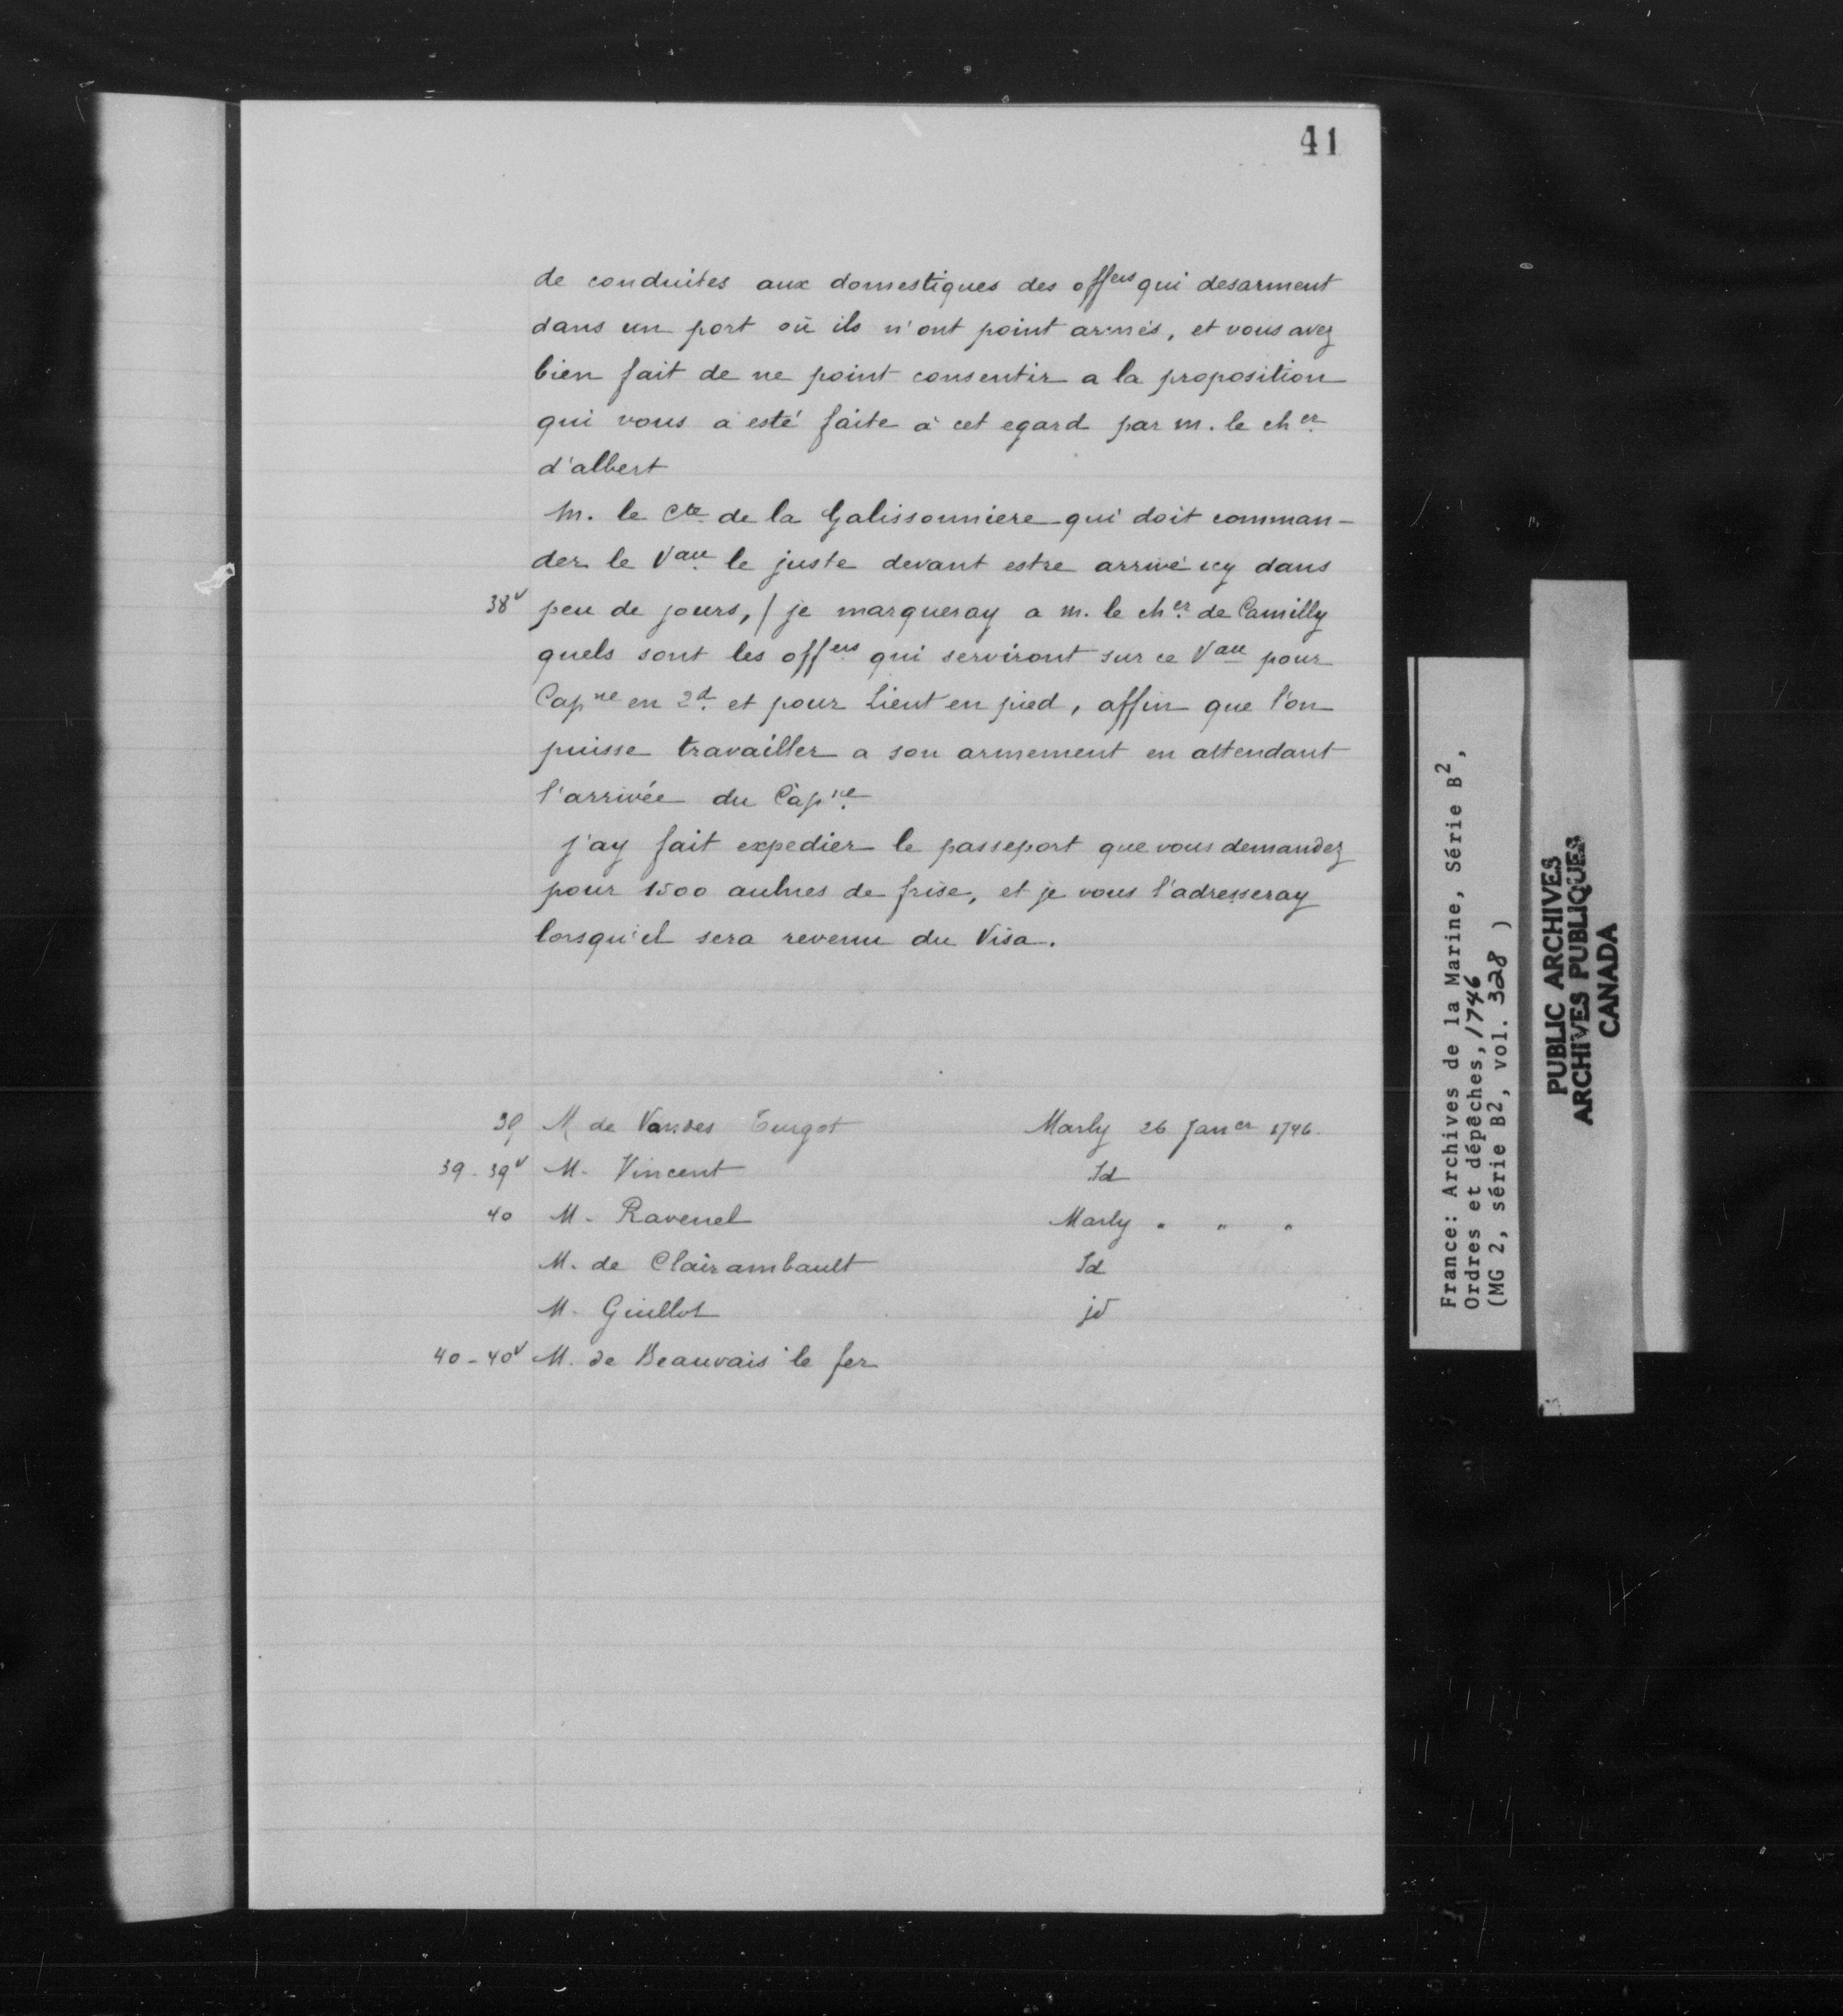 41
de conduites aux domestiques des offers qui desarment
dans un port où ils n'ont point armés, et vous avez
bien fait de ne point consentir a la proposition
qui vous a esté faite à cet egard par m. le cher
d'albert
M. le Cte de la Galissonniere qui doit comman-
der le Vau le juste devant estre arrivé icy dans
38v peu de jours, / je marqueray a m. le cher de Camilly
quels sont les offers qui serviront sur ce Vau pour
Capne en 2d. et pour Lieut en pied, affin que l'on
puisse travailler a son armement en attendant
l'arrivée du Capne
j'ay fait expedier le passeport que vous demandez
pour 1500 aulnes de frise, et je vous l'adresseray
lorsqu'il sera revenu du Visa.
39 M de Vanses Turgot Marly 26 Janer 1746.
39-39v M. Vincent Id
40 M. Ravenel Marly " " "
M. de Clairambault Id
M. Guillot id
40-40v M. de Beauvais le fer
France: Archives de la Marine, Série B2,
Ordres et dépêches, 1746
(MG 2, série B2, vol. 328 )
PUBLIC ARCHIVES
ARCHIVES PUBLIQUES
CANADA